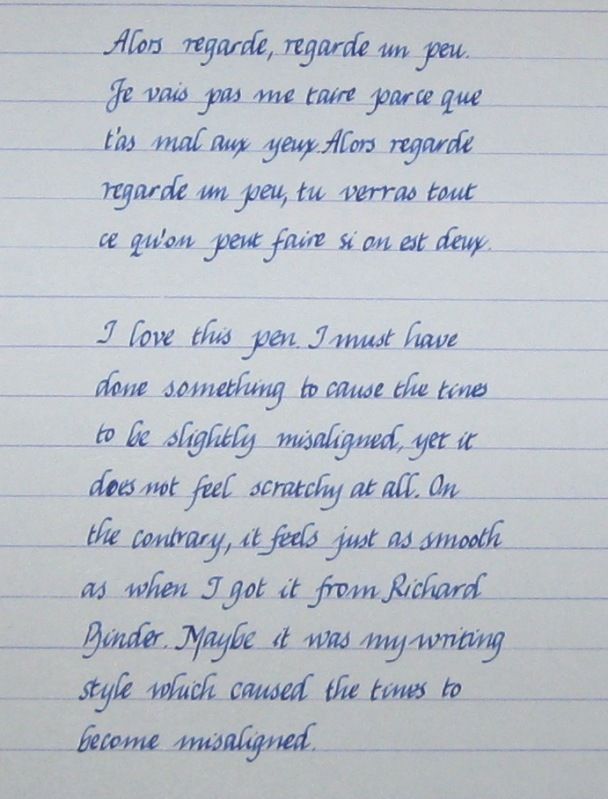 Alors regarde, regarde un peu.
Je vais pas me taire parce que
t'as mal aux yeux. Alors regarde
regarde un peu, tu verras tout
ce qu'on peut faire si on est deux.
I love this pen. I must have
done something to cause the tines
to be slightly misaligned, yet it
does not feel scratchy at all. On
the contrary, it feels just as smooth
as when I got it from Richard
Binder. Maybe it was my writing
style which caused the tines to
become misaligned.